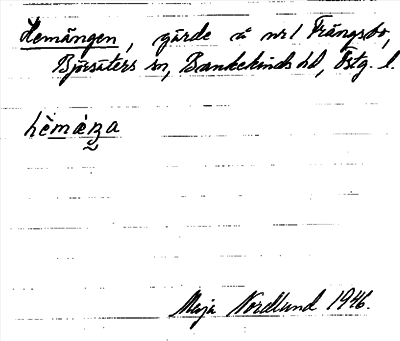 Hemängen, gärde å nr 1 Trängsbo,
Björsäters sn, Bankekinds hd, Östg. l.
hèmæ̀ŋa
Maja Nordlund 1946.